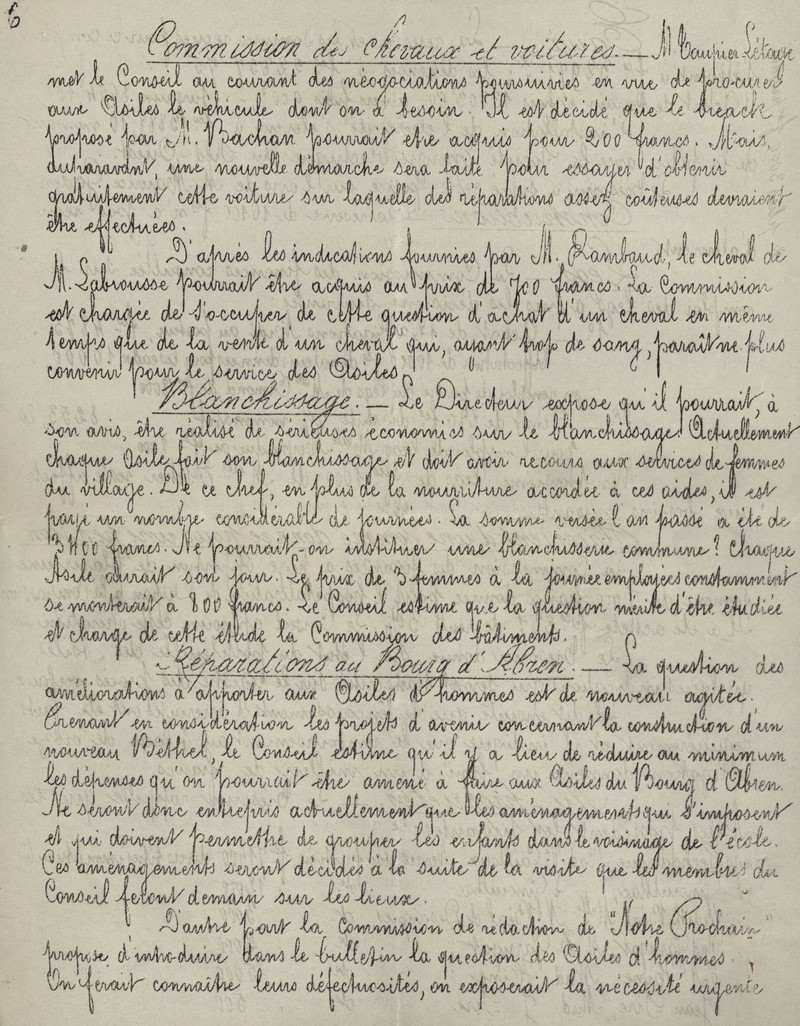 6
Commission des chevaux et voitures. — M. Caupier Létange
met le Conseil au courant des négociations poursuivies en vue de procurer
aux Asiles le véhicule dont on a besoin. Il est décidé que le breack
proposé par M. Bachan pourrait être acquis pour 200 francs. Mais,
auparavant, une nouvelle démarche sera faite pour essayer d'obtenir
gratuitement cette voiture sur laquelle des réparations assez coûteuses devraient
être effectuées.
D'après les indications fournies par M. Rambaud, le cheval de
M. Labrousse pourrait être acquis au prix de 700 francs. La Commission
est chargée de s'occuper de cette question d'achat d'un cheval en même
temps que de la vente d'un cheval qui, ayant trop de sang, paraît ne plus
convenir pour le service des Asiles.
Blanchissage. — Le Directeur expose qu'il pourrait, à
son avis, être réalisé de sérieuses économies sur le blanchissage. Actuellement
chaque Asile fait son blanchissage et doit avoir recours aux services de femmes
du village. De ce chef, en plus de la nourriture accordée à ces aides, il est
payé un nombre considérable de journées. La somme versée l'an passé a été de
francs. Ne pourrait-on instituer une blanchisserie commune ? Chaque
Asile aurait son jour. Le prix de 3 femmes à la journée employées constamment
se monterait à 800 francs. Le Conseil estime que la question mérite d'être étudiée
et charge de cette étude la Commission des bâtiments.
Réparations au Bourg d'Abren. — La question des
améliorations à apporter aux Asiles d'hommes est de nouveau agitée.
Prenant en considération les projets d'avenir concernant la construction d'un
nouveau Béthel, le Conseil estime qu'il y a lieu de réduire au minimum
les dépenses qu'on pourrait être amené à faire aux Asiles du Bourg d'Abren.
Ne seront donc entrepris actuellement que les aménagements qui s'imposent
et qui doivent permettre de grouper les enfants dans le voisinage de l'école.
Ces aménagements seront décidés à la suite de la visite que les membres du
Conseil feront demain sur les lieux.
D'autre part la commission de rédaction de "Notre Prochain"
propose d'introduire dans le bulletin la question des Asiles d'hommes.
On ferait connaître leurs défectuosités, on exposerait la nécessité urgente